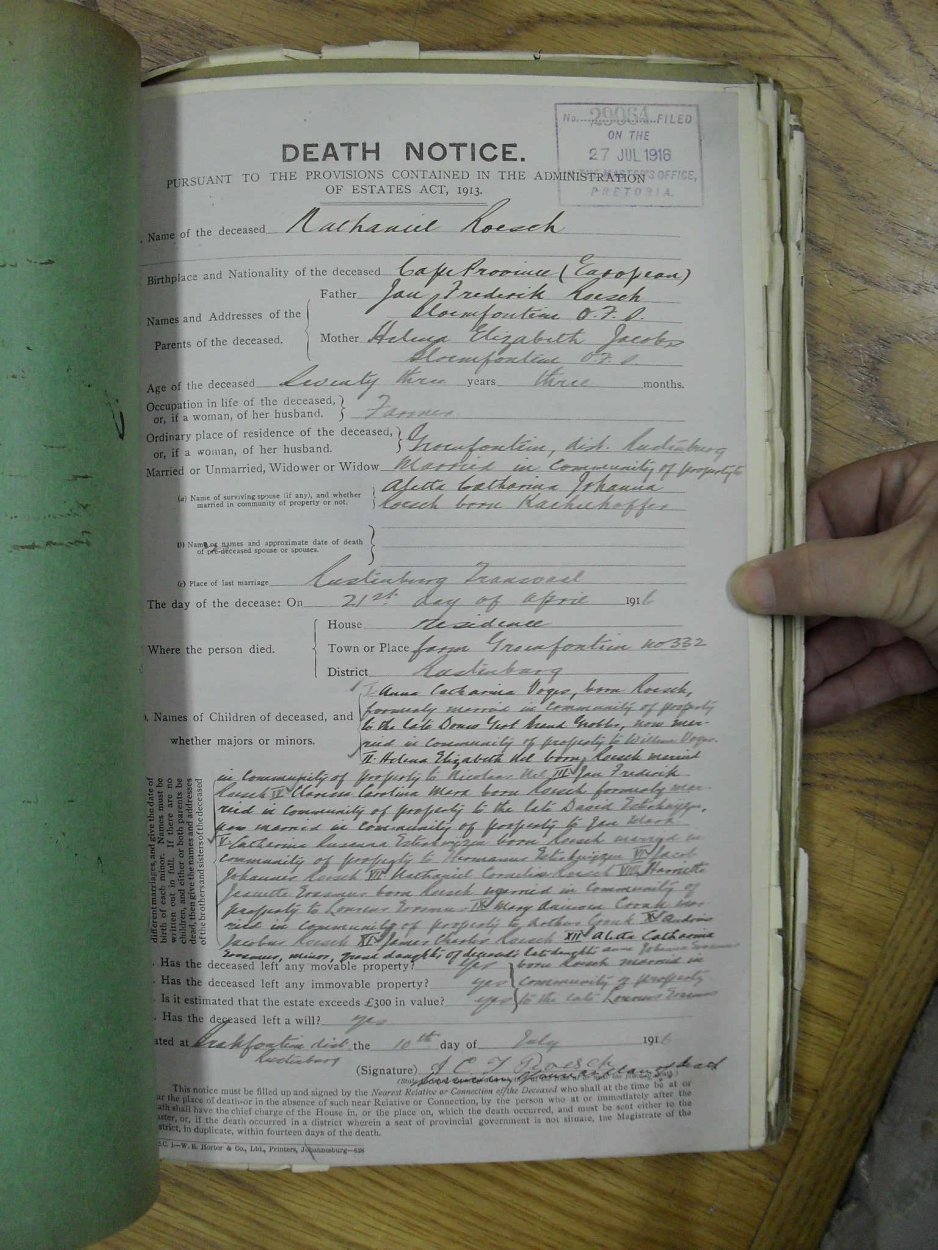 No. 29064 FILED
ON THE
27 JUL 1916
MASTER'S OFFICE,
PRETORIA.
DEATH NOTICE.
PURSUANT TO THE PROVISIONS CONTAINED IN THE ADMINISTRATION
OF ESTATES ACT, 1913.
Name of the deceased Nathaniel Roesch
Birthplace and Nationality of the deceased Cape Province (European)
Names and Addresses of the Parents of the deceased.
Father Jan Frederik Roesch
Bloemfontein O.F.S.
Mother Helena Elizabeth Jacobs
Bloemfontein O.F.S.
Age of the deceased Seventy three years three months.
Occupation in life of the deceased,
or, if a woman, of her husband. Farmer
Ordinary place of residence of the deceased,
or, if a woman, of her husband. Groenfontein, dist. Rustenburg
Married or Unmarried, Widower or Widow Married in Community of property to
(a) Name of surviving spouse (if any), and whether
married in community of property or not. Aletta Catharina Johanna
Roesch born
(b) Name or names and approximate date of death
of pre-deceased spouse or spouses.
(c) Place of last marriage Rustenburg Transvaal
The day of the decease: On 21st day of April 1916
Where the person died.
House residence
Town or Place farm Groenfontein no 332
District Rustenburg
Names of Children of deceased, and
whether majors or minors.
I Anna Catharina Vogs, born Roesch,
formerly married in Community of property
to the late Grobbs, now mar-
ried in community of property to Willem
II Helena Elizabeth Nel born Roesch married
in community of property to Nicolaas Nel III Jan Frederik
Roesch IV Clarissa Carolina Mara born Roesch formerly mar-
ried in community of property to the late David Esterhuyzen,
now married in community of property to Jan Mara
V Catharina Susanna Esterhuyzen born Roesch married in
community of property to Hermanus Esterhuyzen VI Jacob
Johannes Roesch VII Nathaniel Cornelius Roesch VIII
Jeanette Erasmus born Roesch married in community of
property to Erasmus IX Mary Cronk mar-
ried in community of property to Arthur Cronk X Andries
Jacobus Roesch XI James Charles Roesch XII Aletta Catharina
Erasmus, minor, grand daughter of deceased's late daughter Anna Johanna Erasmus
born Roesch married in
community of property
to the late Erasmus
different marriages, and give the date of
birth of each minor. Names must be
written out in full. If there are no
children, and either or both parents be
dead, then give the names and addresses
of the brothers and sisters of the deceased
Has the deceased left any movable property? yes
Has the deceased left any immovable property? yes
Is it estimated that the estate exceeds £300 in value? yes
Has the deceased left a will? yes
ated at Brakfontein dist. Rustenburg the 10th day of July 1916
(Signature) Roesch
This notice must be filled up and signed by the Nearest Relative or Connection of the Deceased who shall at the time be at or
the place of death—or in the absence of such near Relative or Connection, by the person who at or immediately after the
ath shall have the chief charge of the House in, or the place on, which the death occurred, and must be sent either to the
ster, or, if the death occurred in a district wherein a seat of provincial government is not situate, the Magistrate of the
strict, in duplicate, within fourteen days of the death.
—W. E. Hortor & Co., Ltd., Printers, Johannesburg—